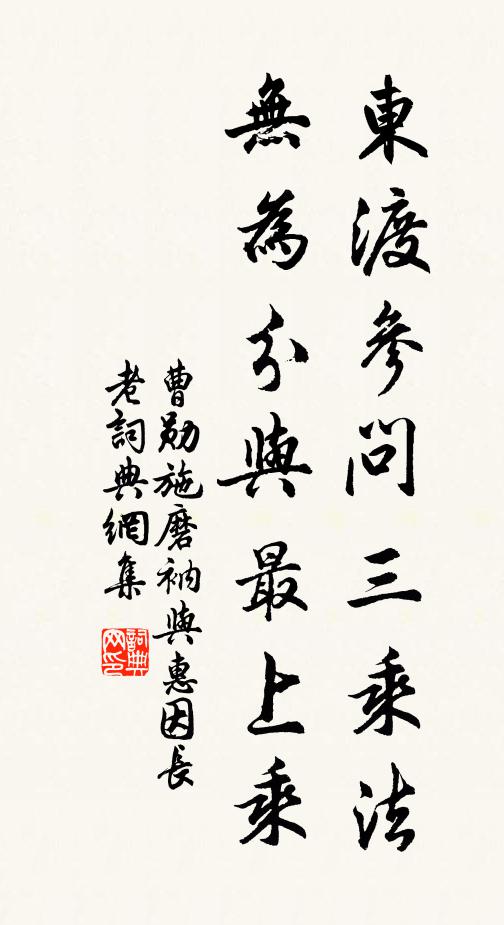 東渡參問三乘法
無為分與最上乘
曹勛施磨衲與惠因長
老詞典網集
詞典
网印